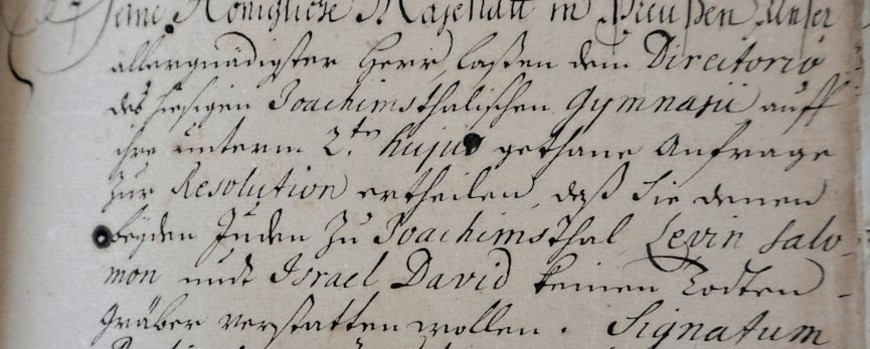 Seine Königliche Majestätt in Preußen Unser
allergnädigster Herr, laßen dem Directorio
des hiesigen Joachimsthalischen Gymnasii auff
ihre unterm 2.ten hujus gethane Anfrage
zur Resolution ertheilen, daß Sie denen
beyden Juden zu Joachimsthal Levin Salo-
mon undt Israel David keinen Todten-
Gräber verstatten wollen. Signatum